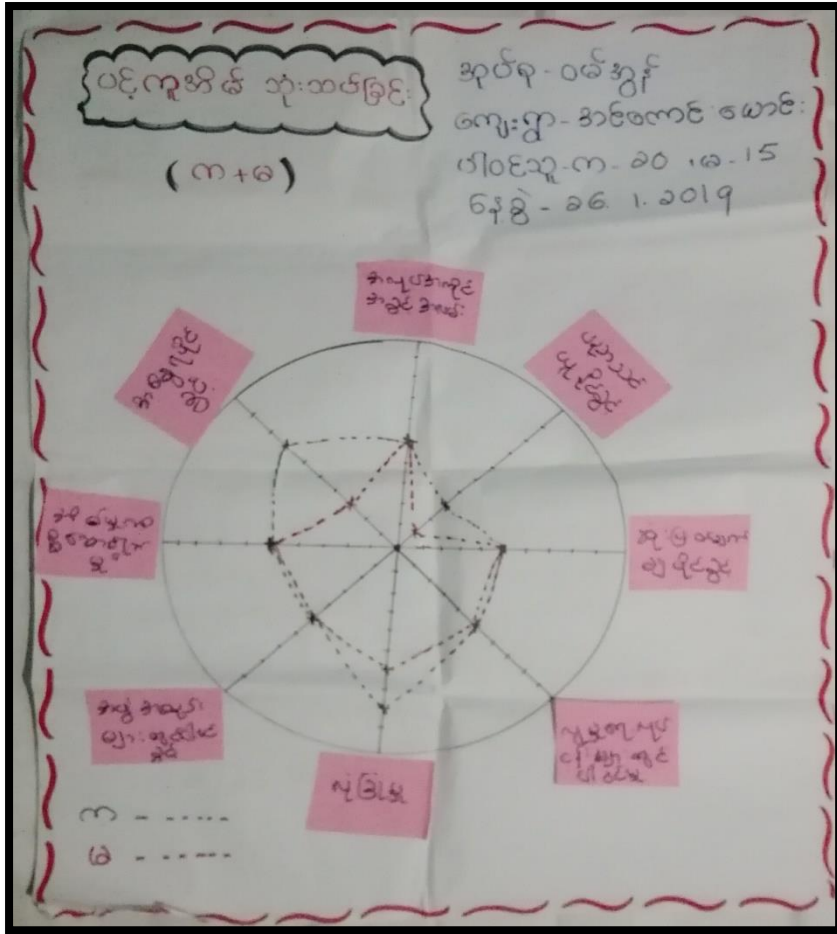 ပင့်ကူအိမ် သုံးသပ်ခြင်း
(က+မ)
အုပ်စု - ဝမ်အွန်
ကျေးရွာ - အင်
ပါဝင်သူ - က - ၁၀ ၊ မ - 15
နေ့စွဲ - ၁6. 1. 2019
အလုပ်အကိုင်
အခွင့်အလမ်း
ပညာသင်
ယူနိုင်ခွင့်
အမွေပိုင်
ဆိုင်
ဆုံးဖြတ်ချက်
ချပိုင်ခွင့်
လူမှုရေးလုပ်
ငန်းများတွင်
ပါဝင်မှု
လုံခြုံမှု
အဖွဲ့အစည်း
များတွင်ပါဝင်
ခွင့်
က
မ